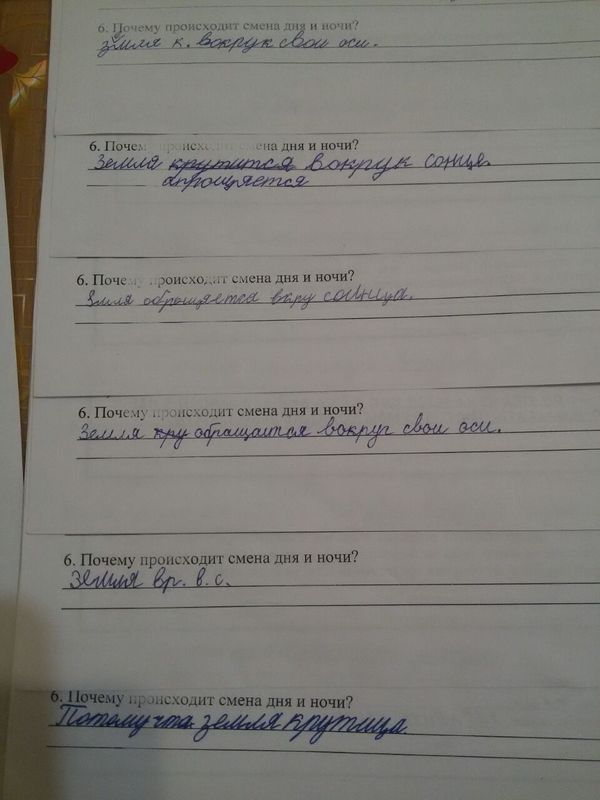 6. Почему происходит смена дня и ночи?
земля к. вокрук свои оси.
6. Почему происходит смена дня и ночи?
Земля крутится вокрук сонце.
апрощяется
6. Почему происходит смена дня и ночи?
Земля оброщяется вкру сонница.
6. Почему происходит смена дня и ночи?
Земля кру обращаится вокруг свои оси.
6. Почему происходит смена дня и ночи?
Земля вр. в. с.
6. Почему происходит смена дня и ночи?
Потому чта земля крутица